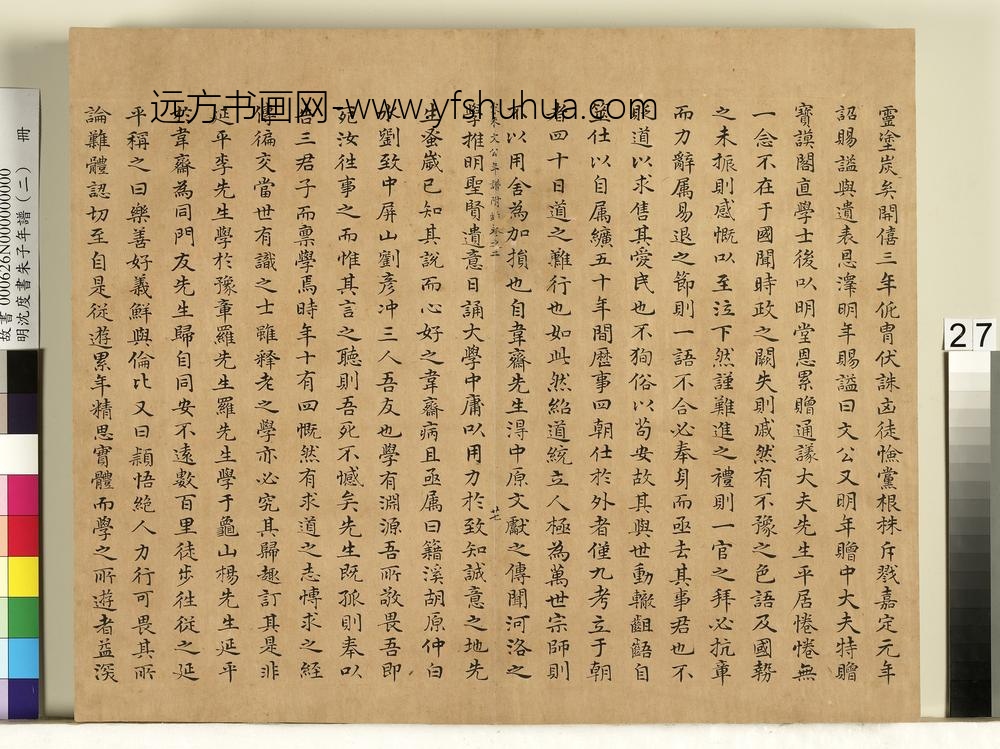 靈塗炭矣開僖三年侂冑伏誅凶徒憸黨根株斥戮嘉定元年
詔賜謚與遺表恩澤明年賜謚曰文公又明年贈中大夫特贈
寶謨閣直學士後以明堂恩累贈通議大夫先生平居惓惓無
一念不在于國聞時政之闕失則戚然有不豫之色語及國勢
之未振則感慨以至泣下然謹難進之禮則一官之拜必抗章
而力辭厲易退之節則一語不合必奉身而亟去其事君也不
貶道以求售其愛民也不狥俗以苟安故其與世動轍齟齬自
筮仕以自属纊五十年間歷事四朝仕於外者僅九考立于朝
者四十日道之難行也如此然紹道統立人極為萬世宗師則
不以用舍為加損也自韋齋先生得中原文獻之傳聞河洛之
朱文公年譜附錄卷之二
廿七
學推明聖賢遺意日誦大學中庸以用力於致知誠意之地先
生蚤歲已知其說而心好之韋齋病且亟属曰籍溪胡原仲白
水劉致中屏山劉彥冲三人吾友也學有淵源吾所敬畏吾即
死汝往事之而惟其言之聽則吾死不憾矣先生既孤則奉以
告三君子而稟學焉時年十有四慨然有求道之志慱求之經
傳徧交當世有識之士雖釋老之學亦必究其歸趣訂其是非
延平李先生學於豫章羅先生羅先生學于龜山楊先生延平
於韋齋為同門友先生歸自同安不遠數百里徒步往從之延
平稱之曰樂善好義鮮與倫比又曰頴悟絕人力行可畏其所
論難體認切至自是從遊累年精思實體而學之所遊者益深
远方书画网-www.yfshuhua.com
故書 000626N000000000
明沈度書朱子年譜（二） 冊
27